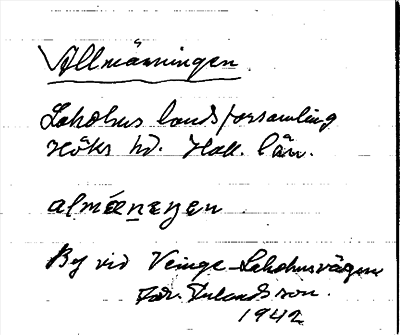 Allmänningen
Laholms landsförsamling
Höks hd. Hall. län.
alméeneŋen
By vid Veinge-Laholmsvägen
1942